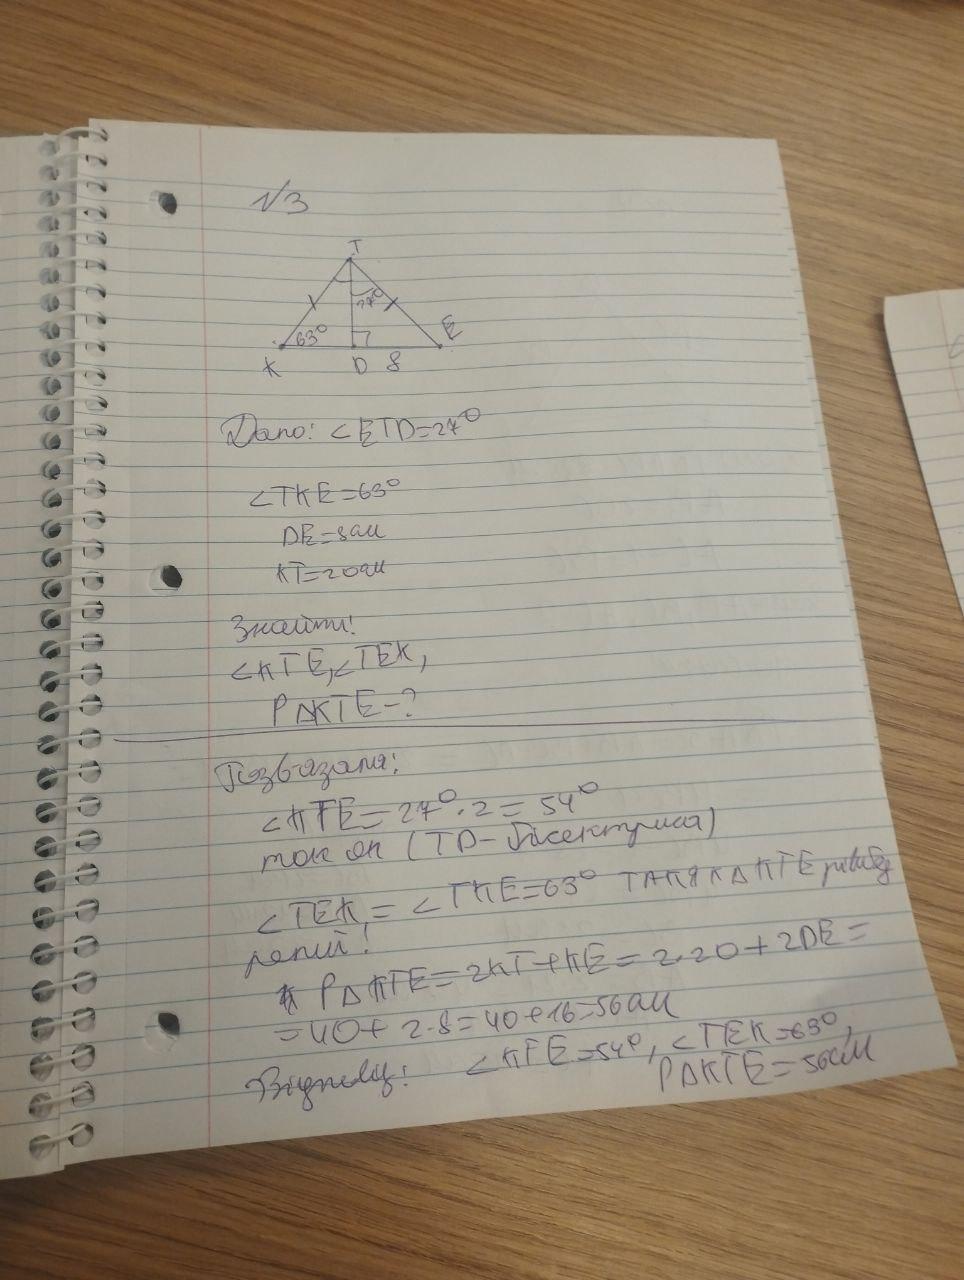 √3
T
27°
63°
K D 8 E
Дано: ∠ETD=27°
∠TKE=63°
DE=8см
KT=20см
Знайти:
∠KTE, ∠TEK,
P△KTE-?
Розвʼязання:
∠KTE=27°·2=54°
так як (TD-бісектриса)
∠TEK=∠TKE=63° ТАК ЯК △KTE рівнобед
рений!
P△KTE=2KT+KE=2·20+2DE=
=40+2·8=40+16=56см
Відповідь: ∠KTE=54°, ∠TEK=63°,
P△KTE=56см